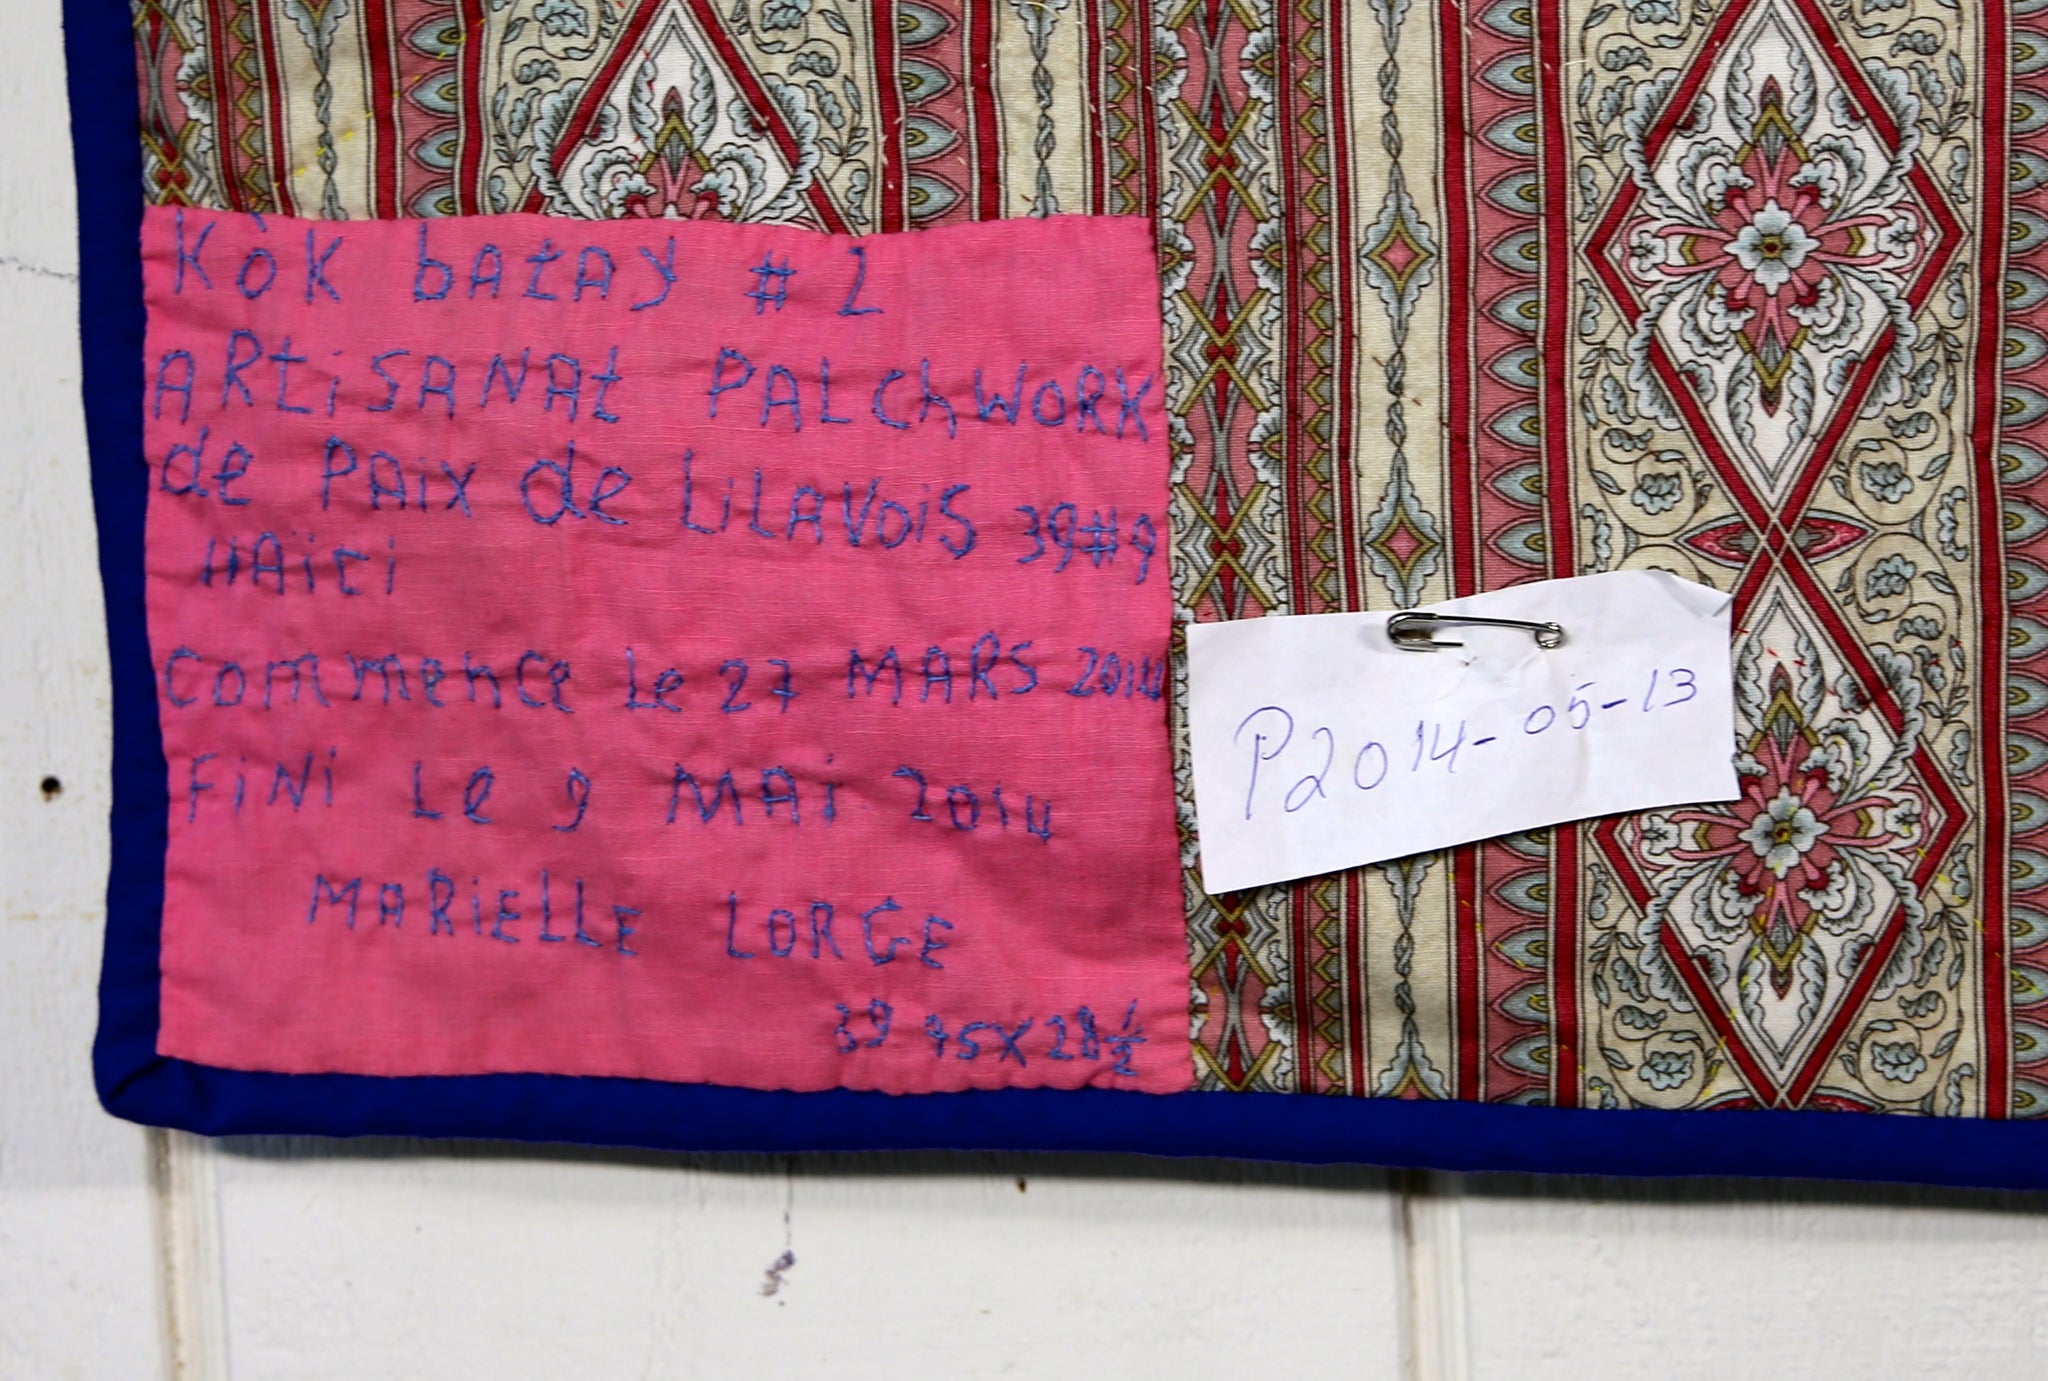 Kòk batay # 2
ARtiSANAt PALChWORK
de PAix de LiLAVOiS 39#9
HAïti
Commence Le 27 MARS 2014
FiNi Le 9 MAi 2014
MARiELLE LORGE
39 45x28 1/2
P2014-05-13